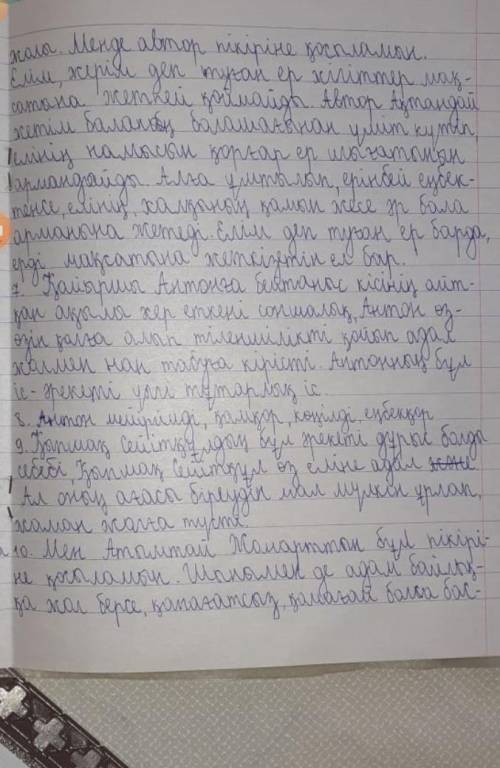 жолы. Менде автор пікіріне қосыламын.
Елім, жерім деп туған ер жігіттер мақ-
сатына жетпей қоймайды. Автор Ақтандай
жетім баланың болашағынан үміт күтіп,
елінің намысын қорғар ер шығатынын
армандайды. Алға ұмтылып, ерінбей еңбек-
тенсе, елінің, халқының қамын жесе әр бала
арманына жетеді. Елім деп туған ер барда,
ерді мақсатына жеткізетін ел бар.
7. Қайыршы Антонға бейтаныс кісінің айт-
қан ақылы әсер еткені соншалық, Антон өз-
өзін қолға алып тіленшілікті қойып адал
жолмен нан табуға кірісті. Антонның бұл
іс-әрекеті үлгі тұтарлық іс.
8. Антон мейірімді, қамқор, көңілді, еңбекқор
9. Қыпмақ Сейітқұлдың бұл әрекеті дұрыс болды
себебі, Қыпмақ Сейітқұл өз еліне адал
Ал оның ағасы біреудің мал мүлкін ұрлап,
жаман жолға түсті.
10. Мен Атымтай Жомарттың бұл пікірі-
не қосыламын. Шынымен де адам байлық-
қа жол берсе, қанағатсыз, қомағай болса бас-